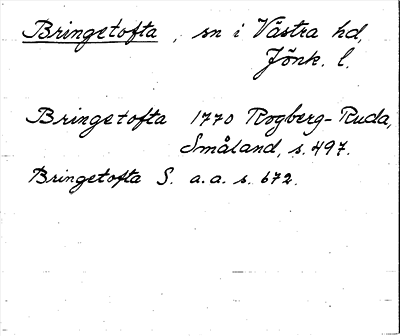 Bringetofta, sn i Västra hd,
Jönk. l.
Bringetofta 1770 Rogberg-Ruda,
Småland, s. 497.
Bringetofta S. a.a. s. 672.